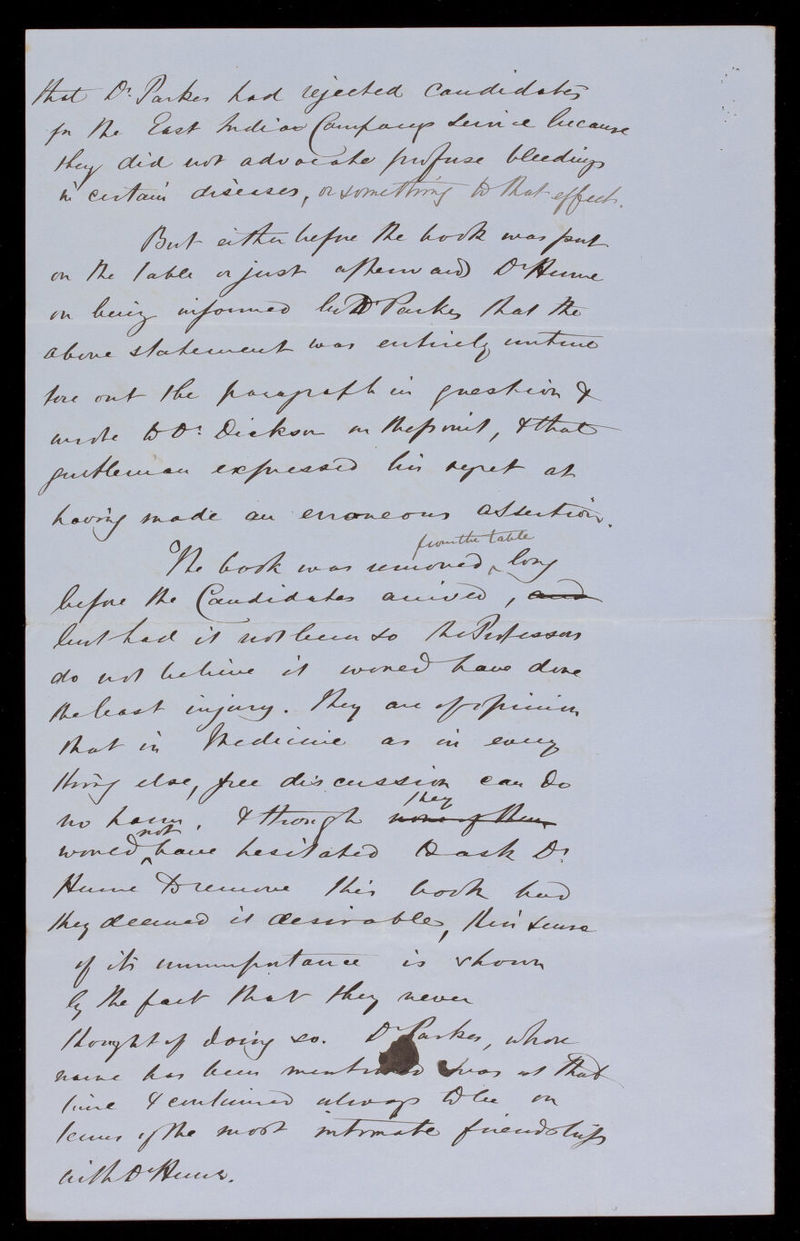 that Dr. Parkes had rejected candidates
for the East Indian Company's Service because
they did not advocate profuse bleedings
in certain diseases, or something to that effect.
But either before the book was put
on the table or just afterward Dr Hume
on being informed by Dr Parkes that the
above statement was entirely untrue
tore out the paragraph in question &
wrote to Dr. Dickson on the point, & that
gentleman expressed his regret at
having made an erroneous assertion.
from the table
The book was removed long
before the Candidates arrived, and
but had it not been so the Professors
do not believe it would have done
the least injury. They are of opinion
that in Medicine as in every
thing else, free discussion can do
they
no harm, & though none of them
not
would have hesitated to ask Dr.
Hume to remove this book had
they deemed it desirable, their sense
of its unimportance is shown
by the fact that they never
thought of doing so. Dr Parkes, whose
name has been mentioned was at that
time & continued always to be on
terms of the most intimate friendship
with Dr Hume.